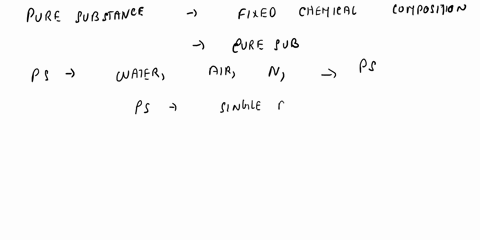 PURE SUBSTANCE → FIXED CHEMICAL COMPOSITION
→ PURE SUB
PS → WATER, AIR, N, → PS
PS → SINGLE